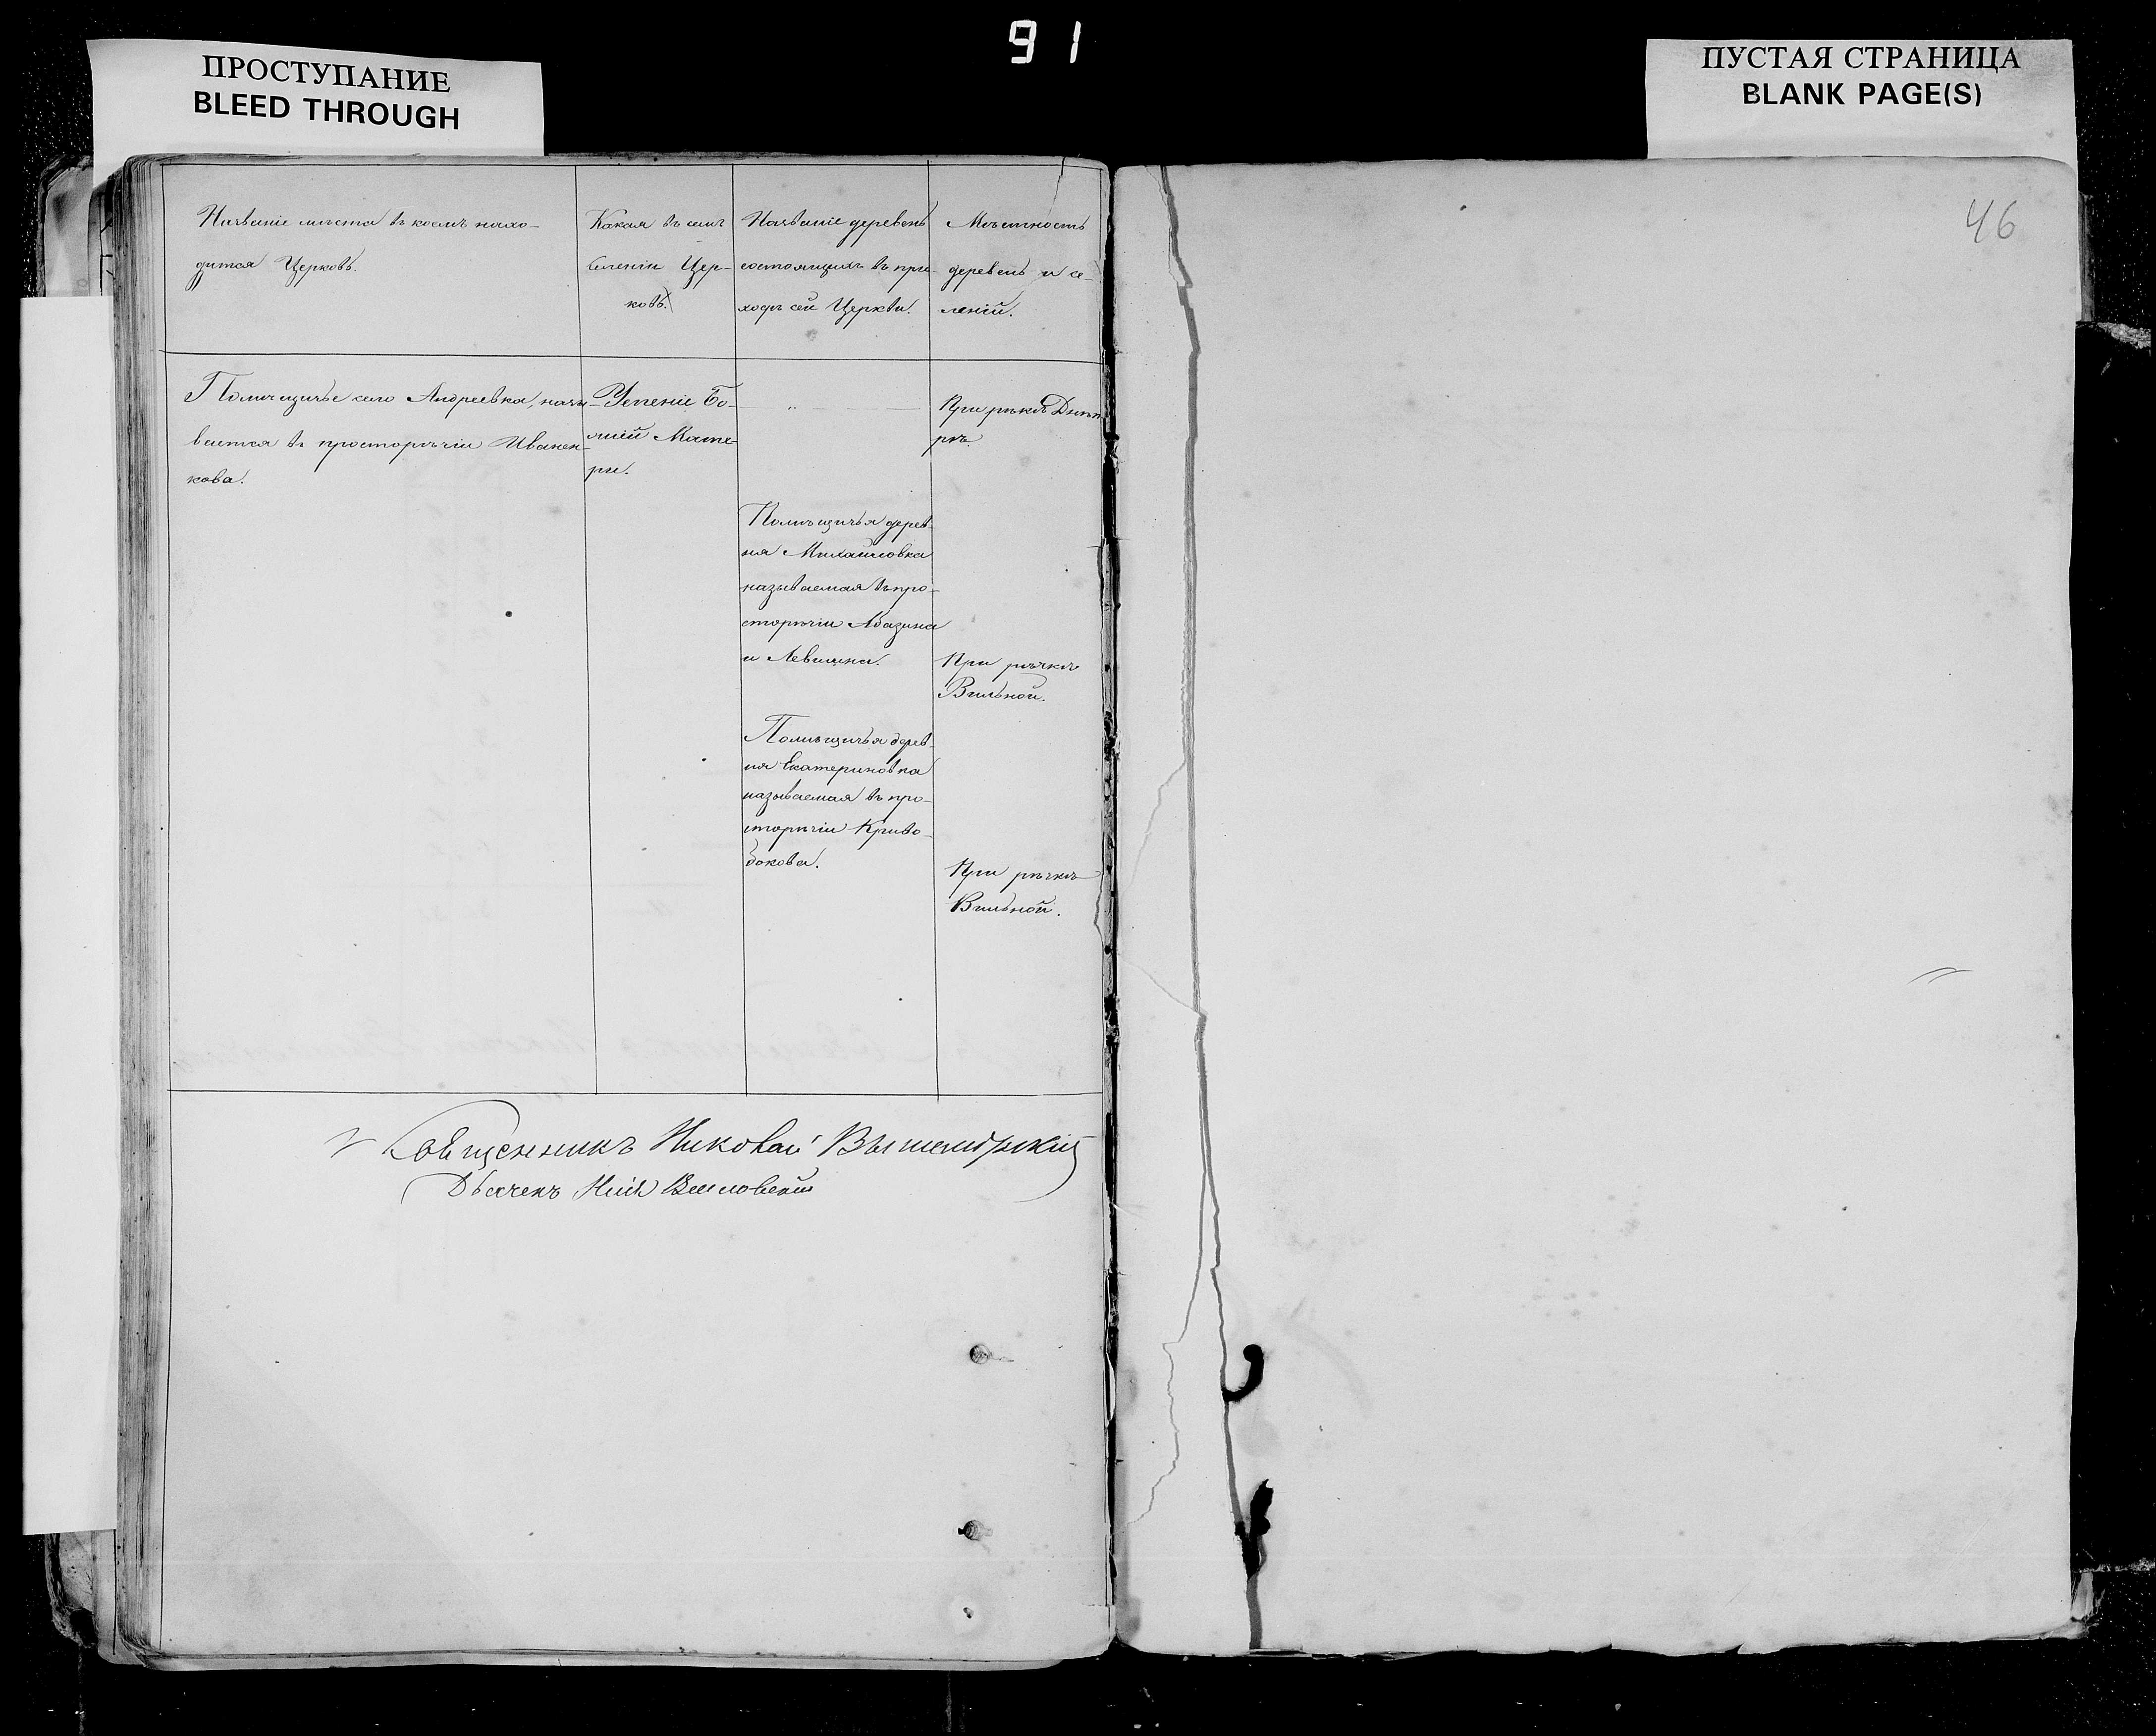 91
ПРОСТУПАНИЕ
BLEED THROUGH
ПУСТАЯ СТРАНИЦА
BLANK PAGE(S)
46
Названіе мѣста въ коемъ нахо-
дится Церковь.
Какая въ семъ
селеніи Цер-
ковь.
Названіе деревень
состоящихъ въ при-
ходѣ сей Церкви.
Мѣстность
деревень и се-
леній.
Помѣщичье село Андреевка, назы-
вается въ просторѣчіи Иванен-
кова.
Успеніе Бо-
жіей Мате-
ри.
При рѣкѣ Днѣп
рѣ.
Помѣщичья дерев-
ня Михайловка
называемая въ про-
сторѣчіи Абазина
и Левшина.
При рѣчкѣ
Вильной.
Помѣщичья дерев-
ня Екатериновка
называемая въ про-
сторѣчіи Криво-
бокова.
При рѣчкѣ
Вильной.
Священникъ Николай
Дьячекъ